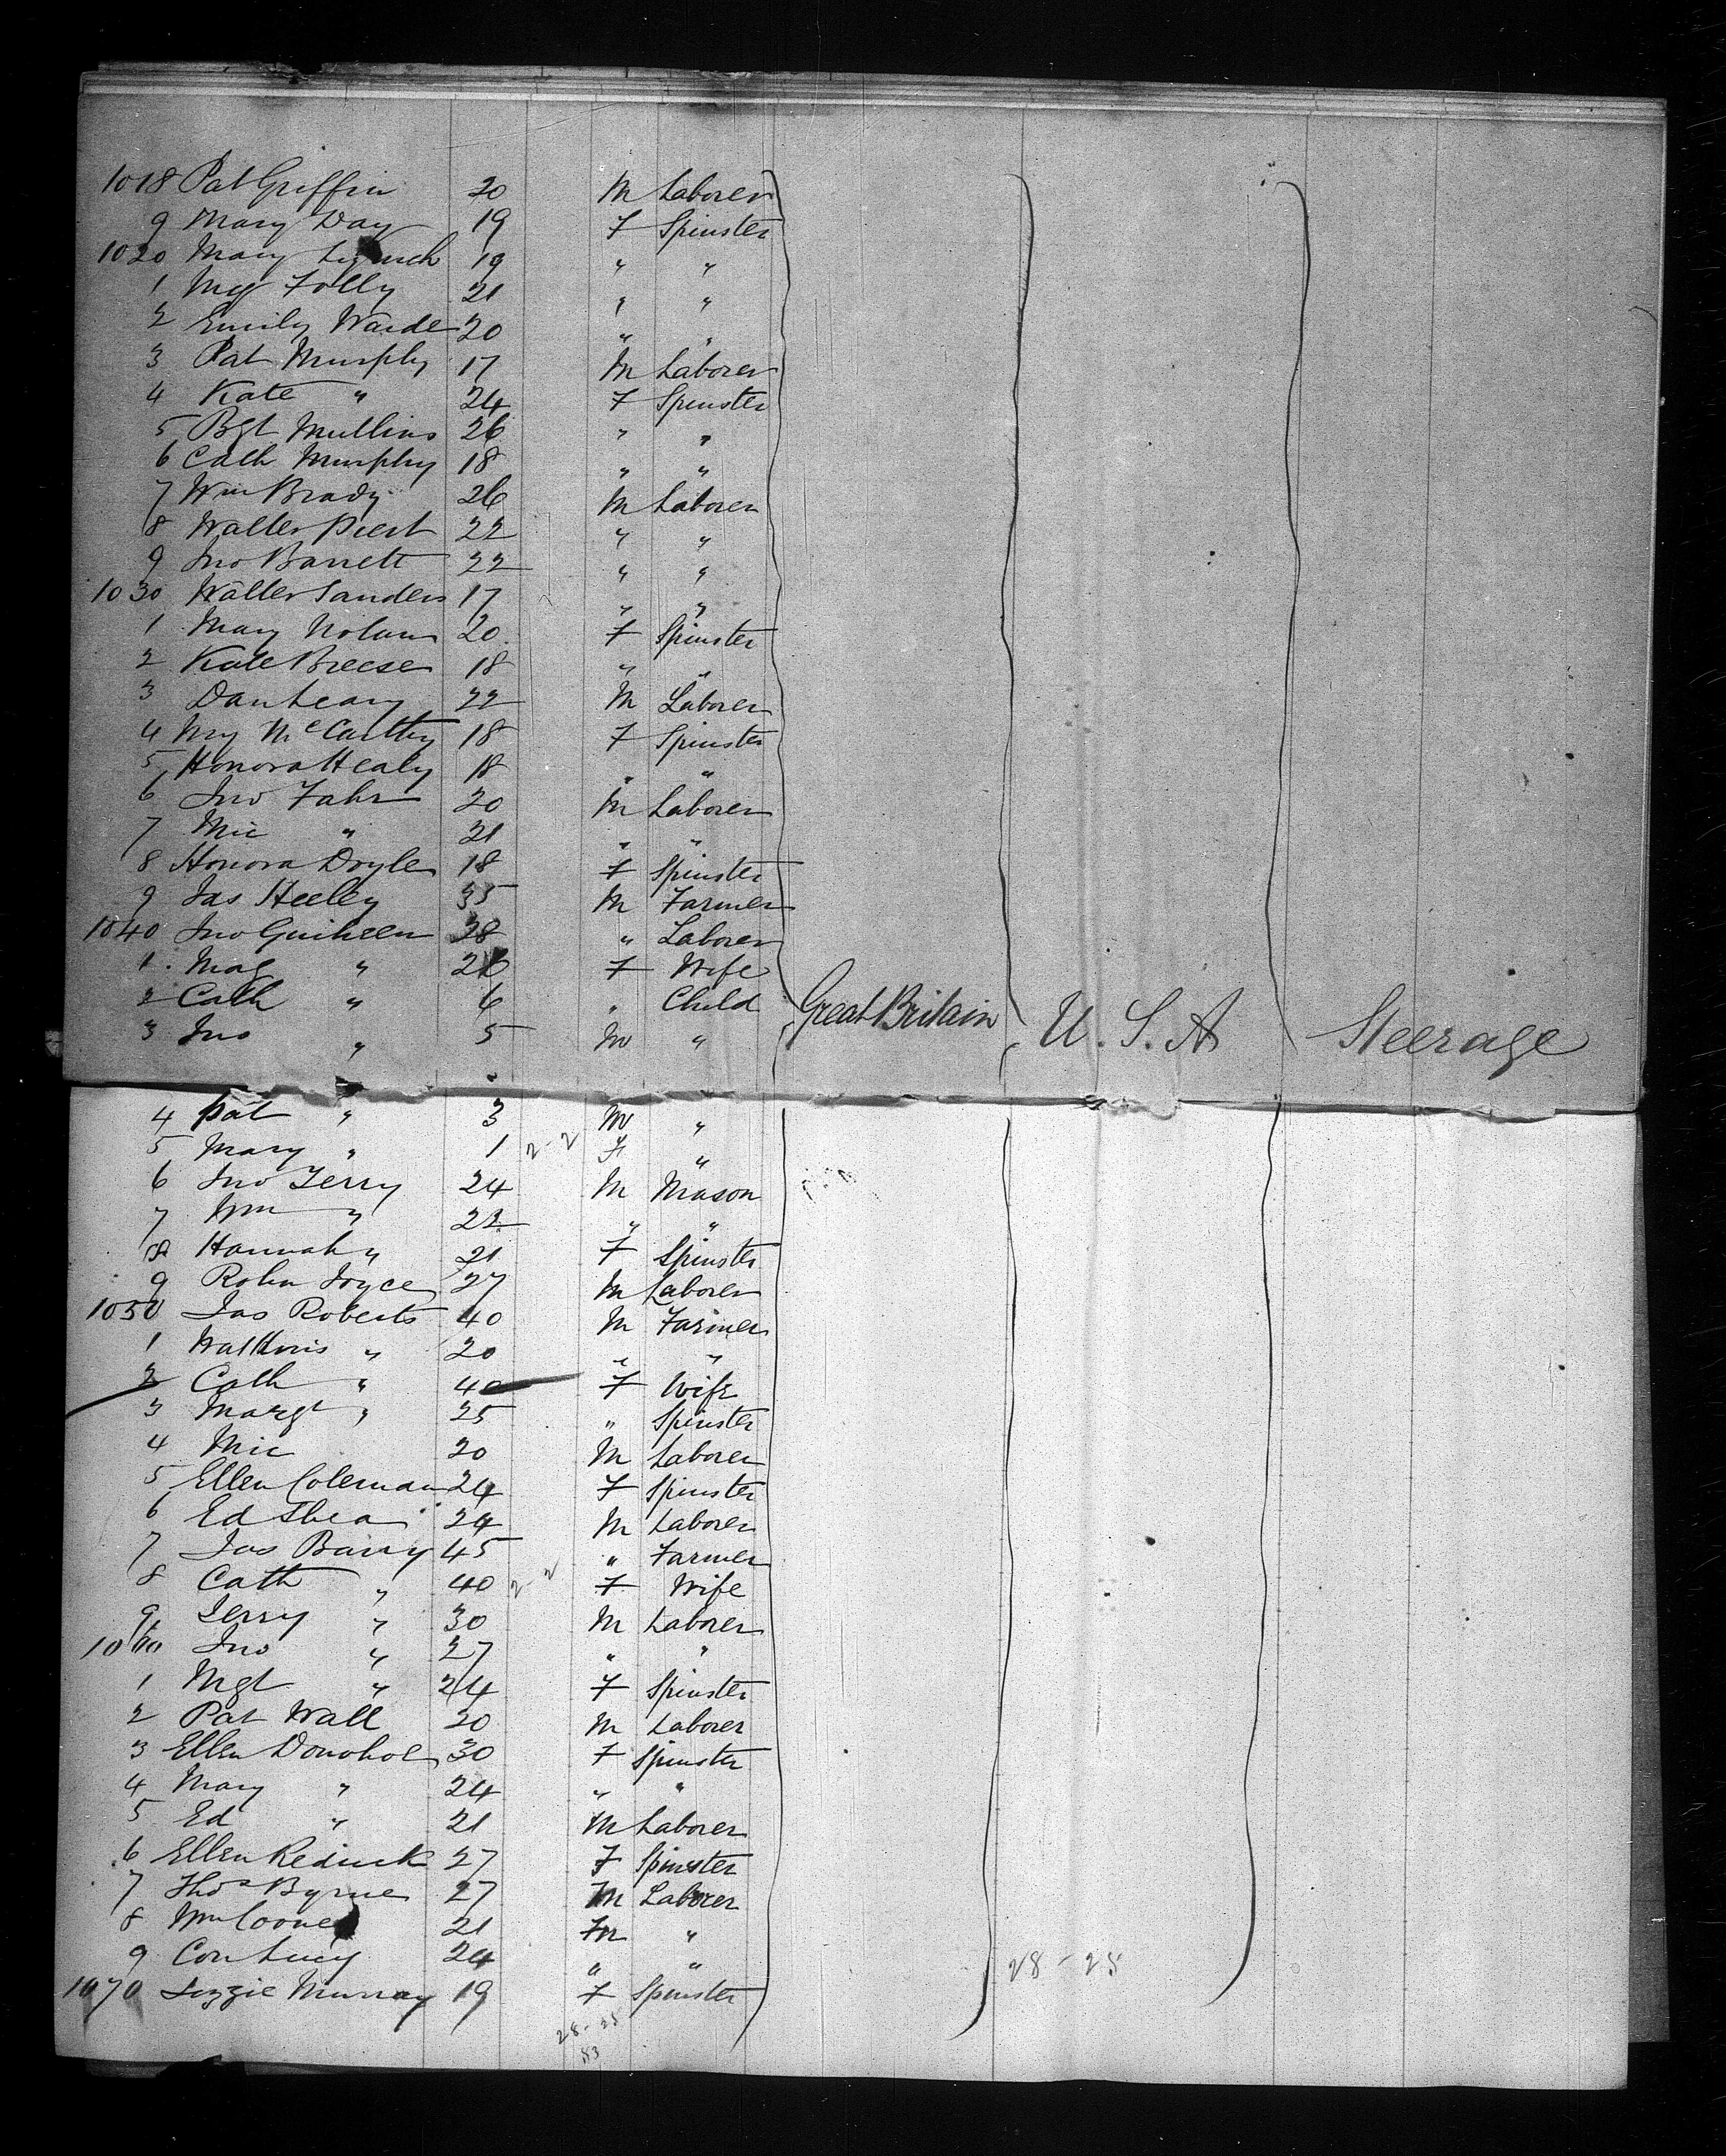 1018 Pat Griffin 20 M Laborer
9 Mary Day 19 F Spinster
1020 Mary Lynch 19 " "
1 Mgt Folly 21 " "
2 Emily Warde 20 " "
3 Pat Murphy 17 M Laborer
4 Kate " 24 F Spinster
5 Bgt Mullins 26 " "
6 Cath Murphy 18 " "
7 Wm Brady 26 M Laborer
8 Walter 22 " "
9 Jno Barrett 22 " "
1030 Walter Sanders 17 " "
1 Mary Nolan 20 F Spinster
2 Kate Breese 18 " "
3 Dan Leary 22 M Laborer
4 My McCarthy 18 F Spinster
5 Honora Healy 18 " "
6 Jno Fahr 20 M Laborer
7 Mic " 21 " "
8 Honora Doyle 18 F Spinster
9 Jas Heeley 35 M Farmer
1040 Jno Guiheen 28 " Laborer
1 Mag " 26 F Wife
2 Cath " 6 " Child Great Britain U.S.A Steerage
3 Jno " 5 M "
4 Pat " 3 M "
5 Mary " 1 2-2 F "
6 Jno Terry 24 M Mason
7 Wm " 22 " "
8 Hannah " 21 F Spinster
9 Robn Joyce 27 M Laborer
1050 Jas Roberts 40 M Farmer
1 " 20 " "
2 Cath " 40 F Wife
3 Margt " 25 " Spinster
4 Mic 20 M Laborer
5 Ellen Coleman 24 F Spinster
6 Ed Shea 24 M Laborer
7 Jas Barry 45 " Farmer
8 Cath " 40 2-2 F Wife
9 Jerry " 30 M Laborer
1060 Jno " 27 " "
1 Mgt " 24 F Spinster
2 Pat Wall 20 M Laborer
3 Ellen Donohoe 30 F Spinster
4 Mary " 24 " "
5 Ed " 21 M Laborer
6 Ellen 27 F Spinster
7 Thos Byrne 27 M Laborer
8 Wm Cooney 21 M "
9 Con Lucy 24 " "
28-28
1070 Lizzie Murray 19 F Spinster
28-25
83